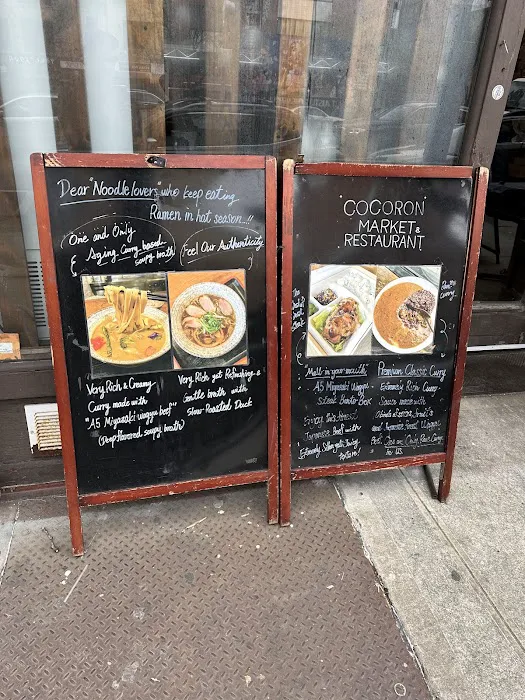 Dear "Noodle lovers" who keep eating
Ramen in hot season..!!
One and Only
Aging Curry based
soupy broth
Feel Our Authenticity
Very Rich & Creamy
Curry made with
"A5 Miyazaki wagyu beef"
(Deep flavored, soupy broth)
Very Rich yet Refreshing &
Gentle broth with
Slow-Roasted Duck
"COCORON"
MARKET &
RESTAURANT
curry
Melt in your mouth
A5 Miyazaki Wagyu
Steak Bento Box
Enjoy this finest
Japanese Beef with
Extremely
texture!
Premium Classic Curry
Extremely Rich Curry
Sauce made with
and Japanese finest Wagyu
Beef. One and Only, Rare Curry
in US.